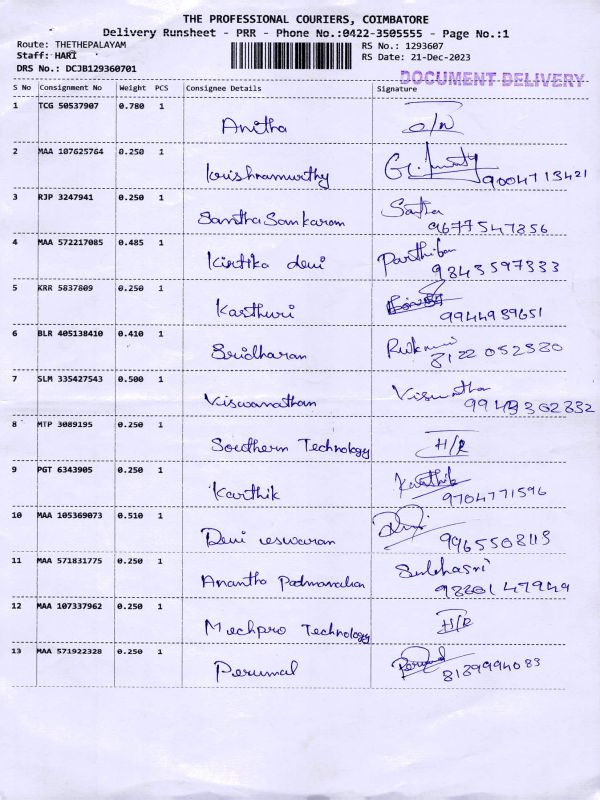 THE PROFESSIONAL COURIERS, COIMBATORE
Delivery Runsheet - PRR - Phone No.:0422-3505555 - Page No.:1
Route: THETHEPALAYAM RS No.: 1293607
Staff: HARI RS Date: 21-Dec-2023
DRS No.: DCJB129360701
DOCUMENT DELIVERY
S No Consignment No Weight PCS Consignee Details Signature
1 TCG 50537907 0.780 1 Anitha
2 MAA 107625764 0.250 1 krishnamurthy 9004713421
3 RJP 3247941 0.250 1 Santha Sankaram Santha
9677547856
4 MAA 572217085 0.485 1 Kirtika devi Parthiban
9843597333
5 KRR 5837809 0.250 1 Kasthuri
9944939651
6 BLR 405138410 0.410 1 Sridharan Rukmani
8122 052330
7 SLM 335427543 0.500 1 Viswanathan Viswnatha
8 MTP 3089195 0.250 1 Southern Technology H/R
9 PGT 6343905 0.250 1 Karthik Karthik
9704771596
10 MAA 105369073 0.510 1 Devi eswaran
9965508113
11 MAA 571831775 0.250 1 Anantha Padmanaban Subhasri
98201 47949
12 MAA 107337962 0.250 1 Mechpro Technology H/R
13 MAA 571922328 0.250 1 Perumal Perumal
8189994083